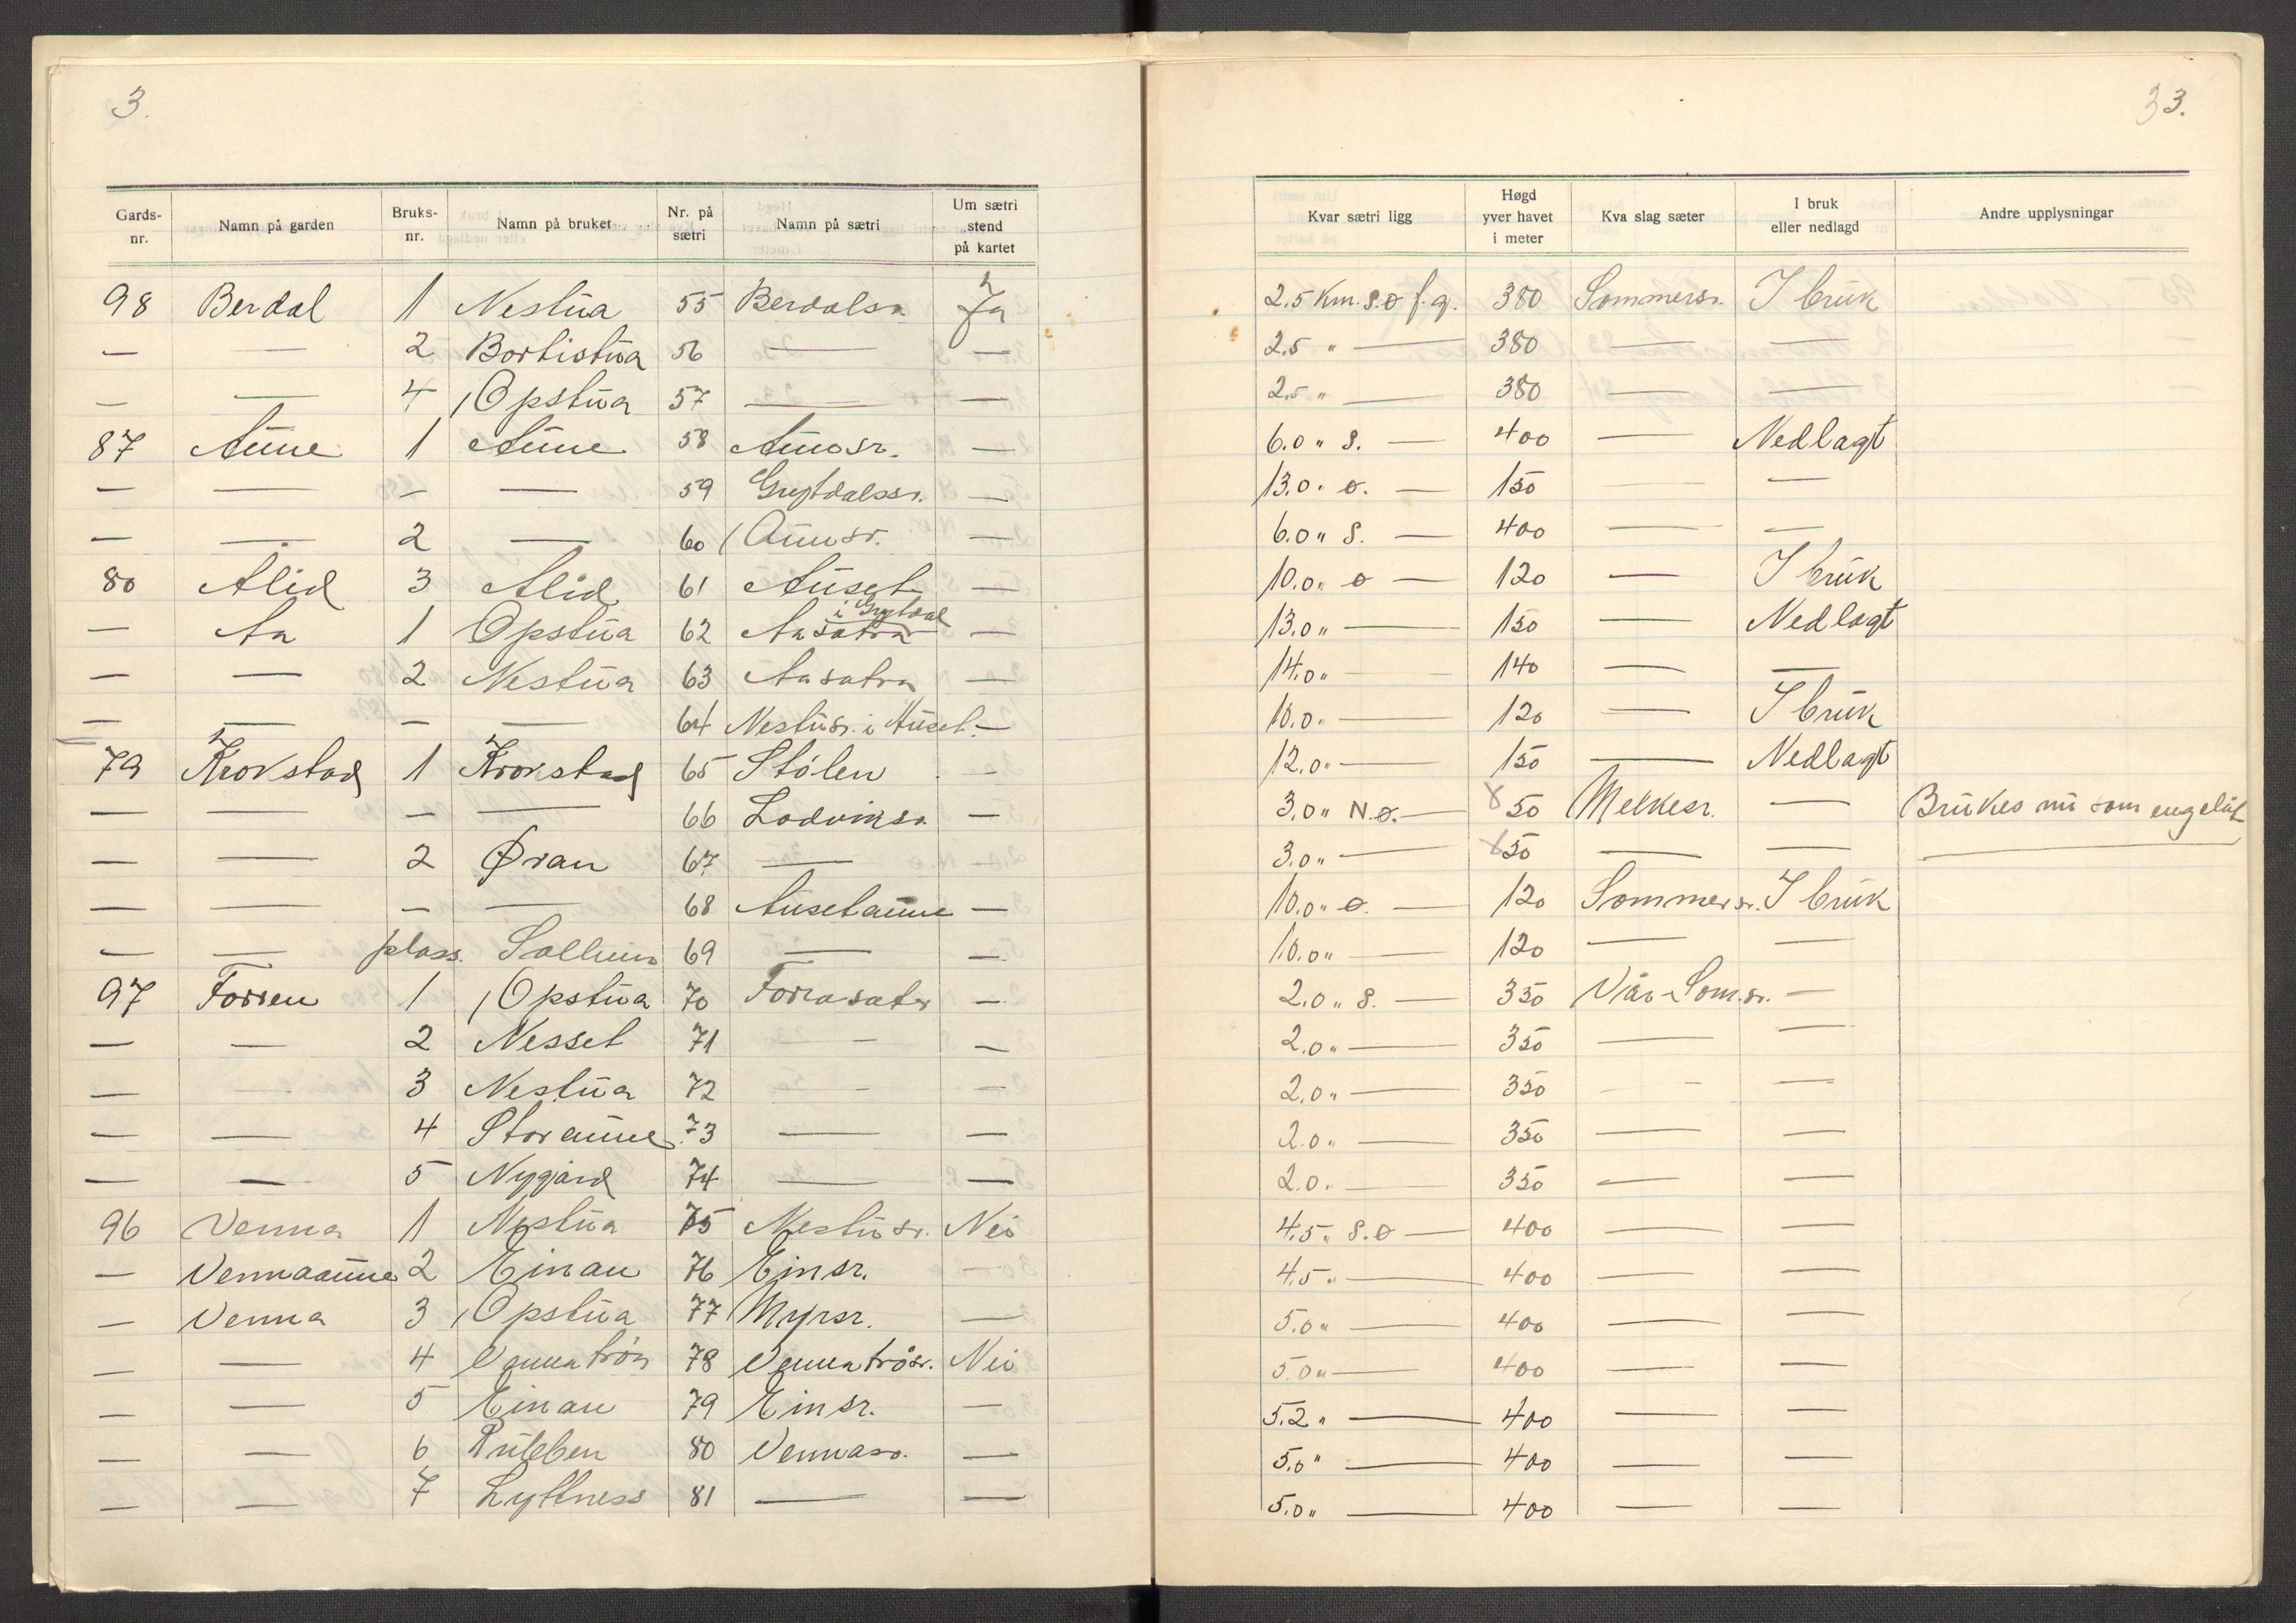 3.
Gards-nr. | Namn på garden | Bruks-nr. | Namn på bruket | Nr. på sætri | Namn på sætri | Um sætri stend på kartet
98 Berdal 1 Nestua 55 Berdalsr. Ja
— — 2 Bortistua 56 — —
— — 4 Opstua 57 — —
87 Aune 1 Aune 58 Aunosr. —
— — — — 59 Grytdalssr. —
— — 2 — 60 Aunsr. —
80 Alid 3 Alid 61 Auset —
— Aa 1 Opstua 62 Aasatra i Grytdal —
— — 2 Nestua 63 Aasatra —
— — — — 64 Nestusr. i Auset. —
79 Krokstad 1 Krokstad 65 Stølen —
— — — — 66 Lodviksr. —
— — 2 Øran 67 — —
— — — — 68 Ausetaune —
— — plass. 69 — —
97 Forren 1 Opstua 70 Forrasater —
— — 2 Nesset 71 — —
— — 3 Nestua 72 — —
— — 4 Storaune 73 — —
— — 5 Nygård 74 — —
96 Venna 1 Nestua 75 Nestusr. Nei
— Vennaaune 2 Einan 76 Einsr. —
— Venna 3 Opstua 77 Myrsr. —
— — 4 Vennatrøa 78 Vennatrøsr. Nei
— — 5 Einan 79 Einsr. —
— — 6 80 Vennasr. —
— — 7 Lyttness 81 — —
33.
Kvar sætri ligg | Høgd yver havet i meter | Kva slag sæter | I bruk eller nedlagd | Andre upplysningar
2.5 Km. S.Ø f.g. 380 Sommersr. I bruk
2.5 " — 380 — —
2.5 " — 380 — —
6.0 " S. — 400 — Nedlagt
13.0 " Ø. — 150 — —
6.0 " S. — 400 — —
10.0 " Ø — 120 — I bruk
13.0 " — 150 — Nedlagt
14.0 " — 140 — —
10.0 " — 120 — I bruk
12.0 " — 150 — Nedlagt
3.0 " N.Ø. — 50 Melkesr. — Brukes nu som engslåt
3.0 " — 50 — —
10.0 " Ø. — 120 Sommersr. I bruk
10.0 " — 120 — —
2.0 " S. — 350 Vår-Som.sr. —
2.0 " — 350 — —
2.0 " — 350 — —
2.0 " — 350 — —
2.0 " — 350 — —
4.5 " S.Ø — 400 — —
4.5 " — 400 — —
5.0 " — 400 — —
5.0 " — 400 — —
5.2 " — 400 — —
5.0 " — 400 — —
5.0 " — 400 — —